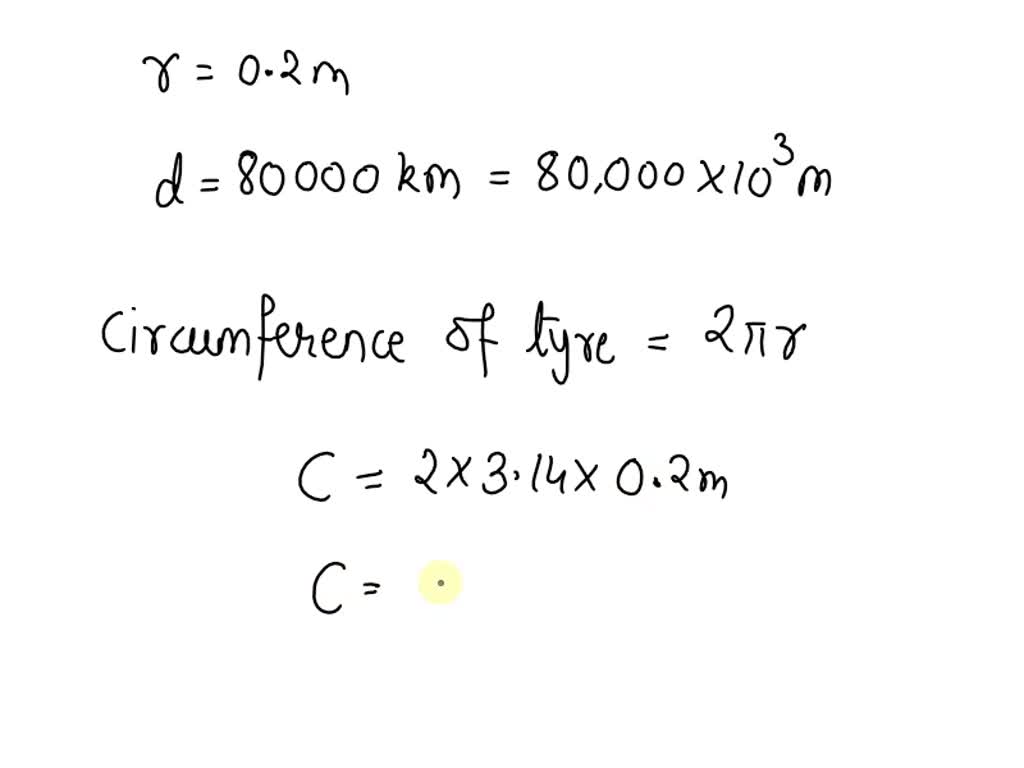 r = 0.2m
d = 80000 km = 80,000 × 10³ m
Circumference of tyre = 2πr
C = 2 × 3.14 × 0.2m
C =